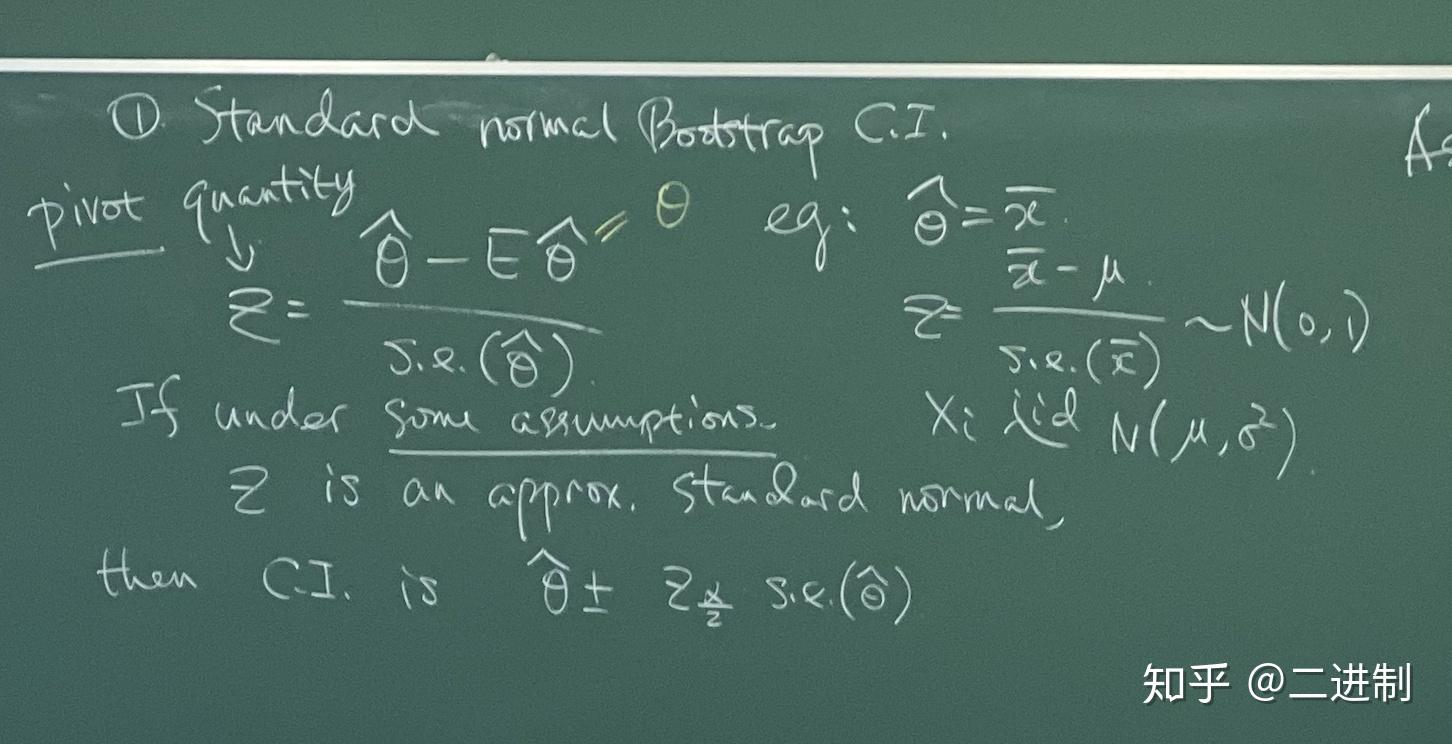 ① Standard normal Bootstrap C.I.
pivot quantity
↓
Z = (θ̂ − Eθ̂) / s.e.(θ̂)
= θ
eg: θ̂ = x̄.
Z = (x̄ − μ) / s.e.(x̄) ~ N(0,1)
Xi iid N(μ, σ²).
If under some assumptions.
Z is an approx. standard normal,
then C.I. is θ̂ ± Z_{α/2} s.e.(θ̂)
知乎 @二进制